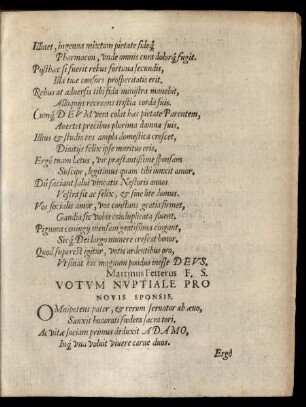 Illiaet, ingenua mixtum pietate fideq́
Pharmacon, vnde omnis cura dolorq́ fugit.
Posthac si fuerit rebus fortuna secundis,
Illa tuæ consors prosperitatis erit.
Rebus at adversis tibi fida ministra manebit,
Alloquijs recreans tristia corda suis.
Cumq́ DEVM vera colat hæc pietate Parentem,
Avertet precibus plurima damna suis.
Illius & studio res ampla domestica crescet,
Divitijs felix ipse meritus eris.
Ergò tuam lætus, vir præstantissime sponsam
Suscipe, legitimus quam tibi iunxit amor.
Dii faciant salui vivatis Nestoris annos
Vestra sit ac felix, & sine lite domus.
Vos socialis amor, vos constans gratia firmet,
Gaudia sic vobis conduplicata fluent.
Pignora coniugij mensam gratissima cingant,
Sicq́ Dei largo munere crescat honor.
Quod superest igitur, votis ardentibus oro,
Vt sinat hæc magnum pondus inesse DEVS.
Martinus Fetterus F. S.
VOTVM NVPTIALE PRO
NOVIS SPONSIS.
OMnipotens pater, & rerum servator ab ævo,
Sanxit honorati fœdera sacra tori,
Ac vitæ sociam primus deduxit ADAMO,
Inq́ una voluit vivere carne duos.
Ergò